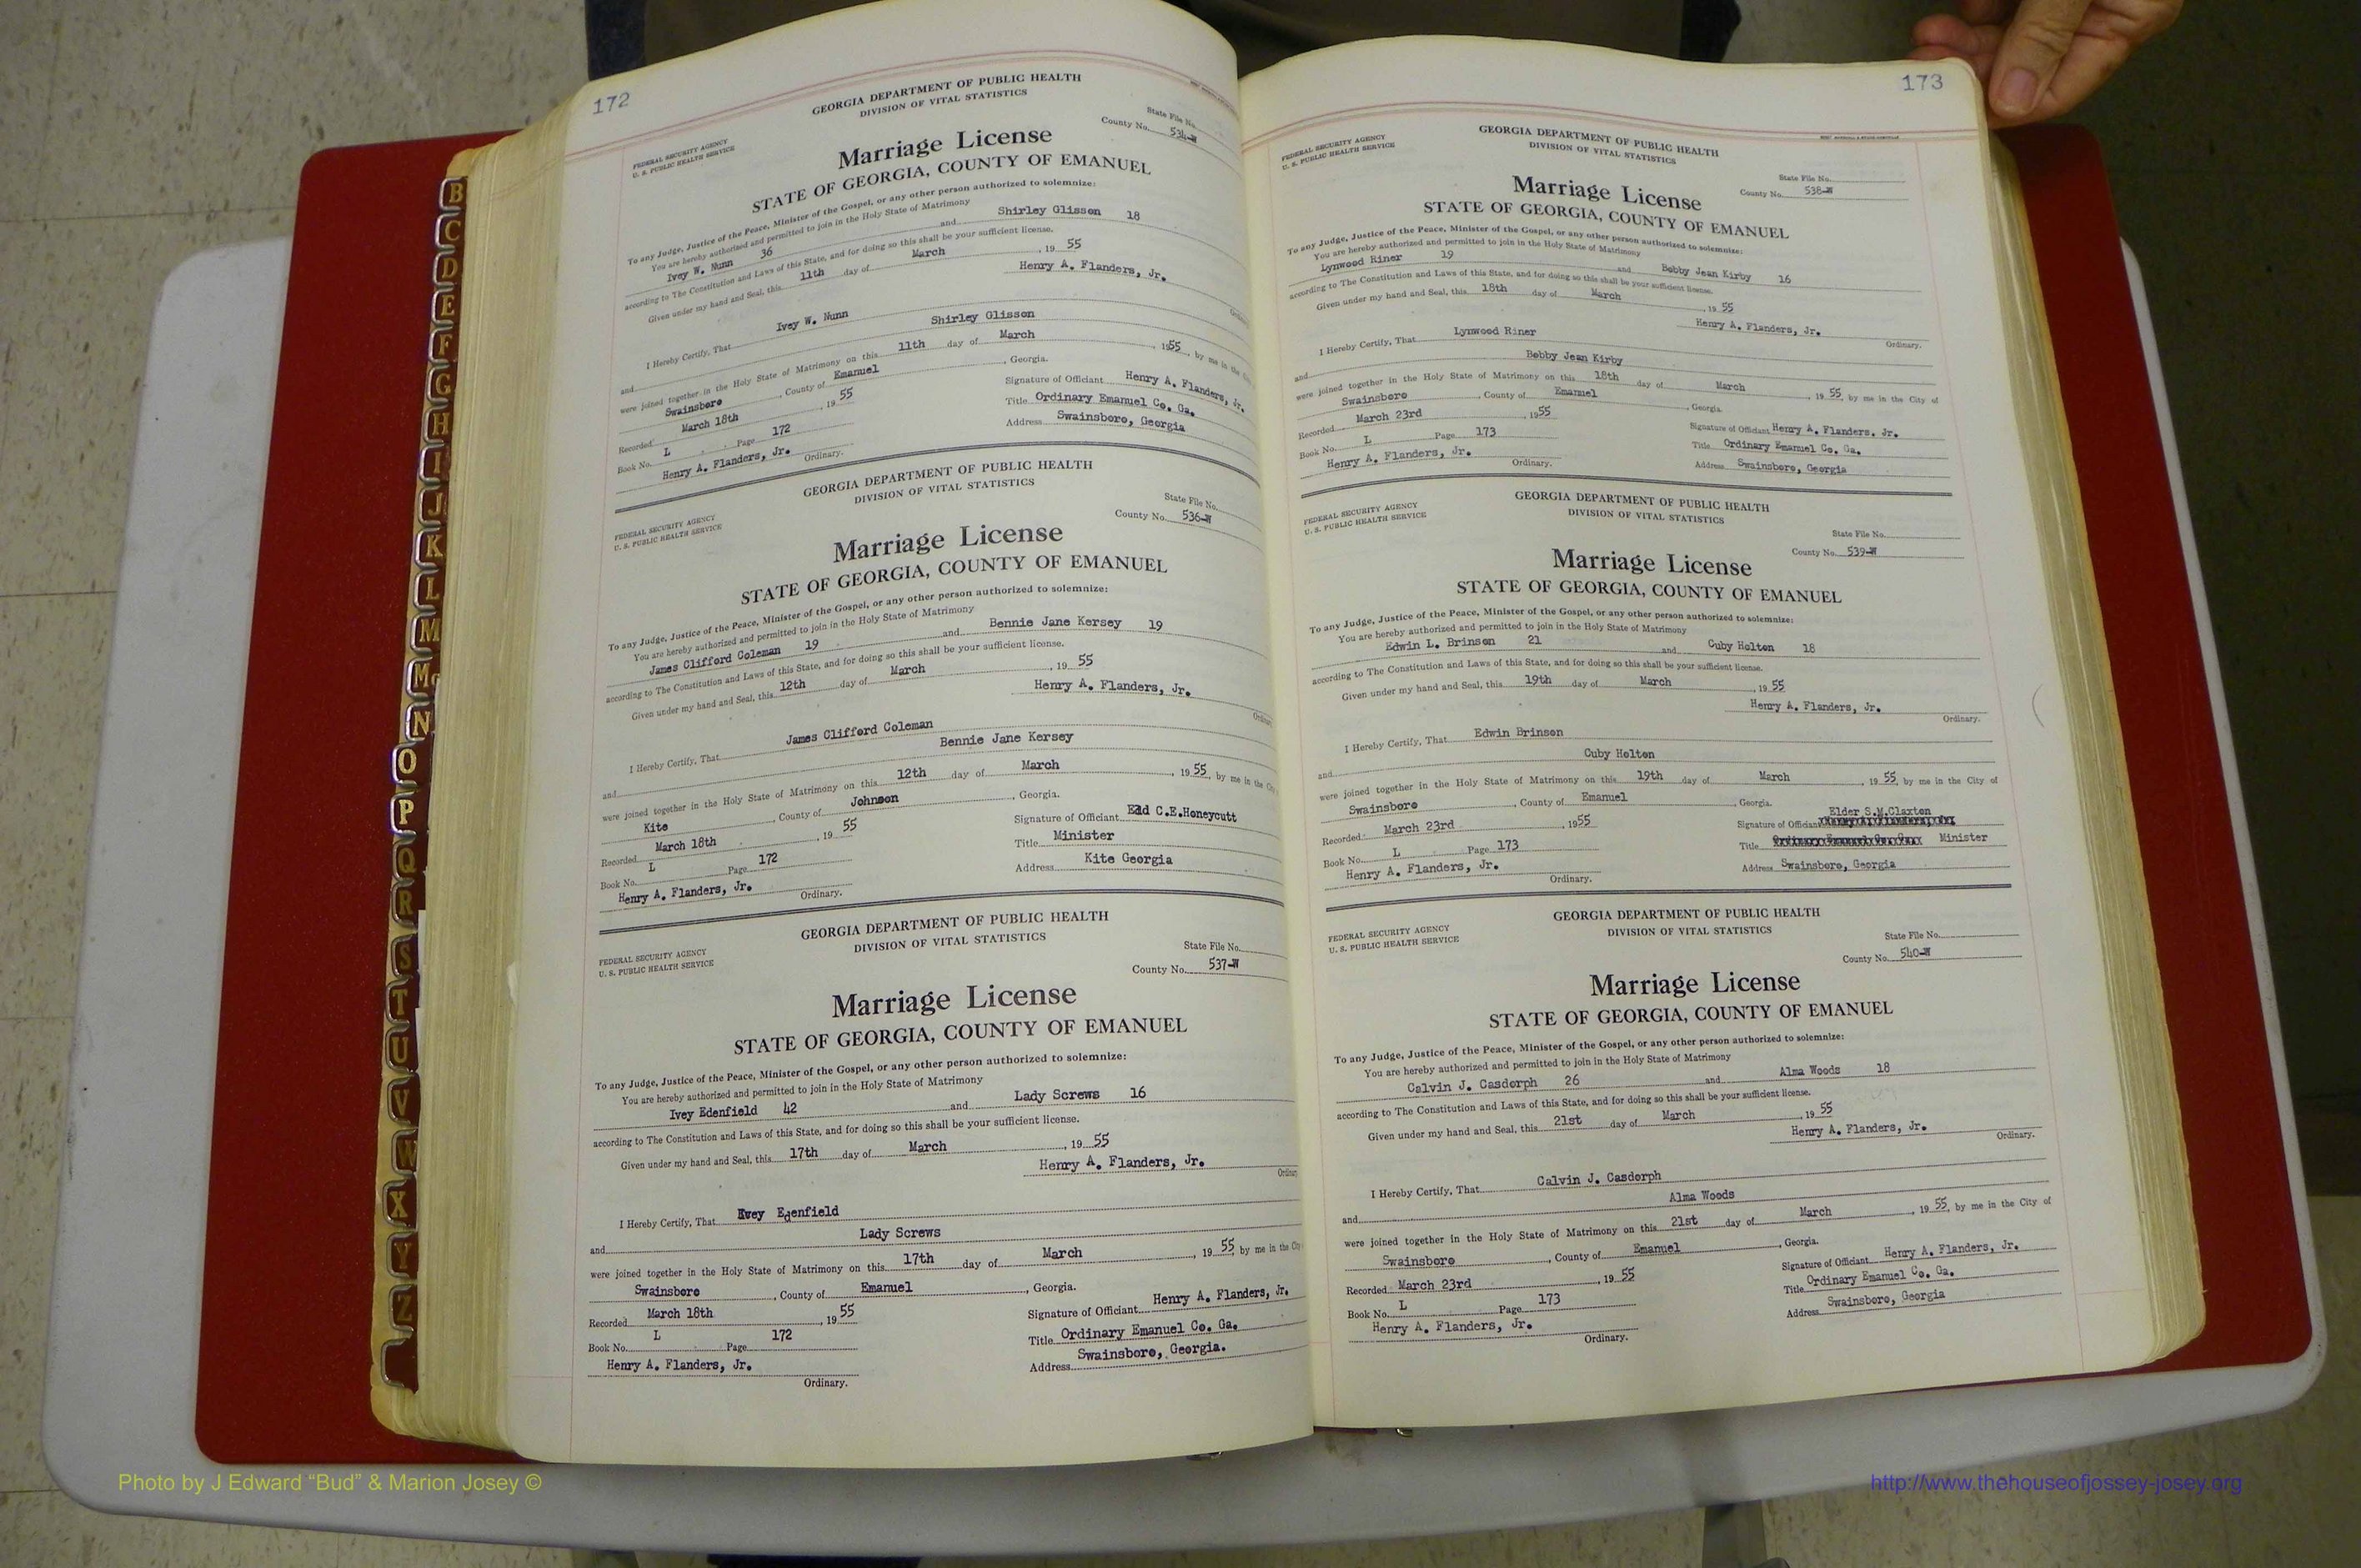 172
GEORGIA DEPARTMENT OF PUBLIC HEALTH
DIVISION OF VITAL STATISTICS
FEDERAL SECURITY AGENCY
U. S. PUBLIC HEALTH SERVICE
State File No.
County No. 534-W
Marriage License
STATE OF GEORGIA, COUNTY OF EMANUEL
To any Judge, Justice of the Peace, Minister of the Gospel, or any other person authorized to solemnize:
You are hereby authorized and permitted to join in the Holy State of Matrimony
Ivey W. Nunn 36 and Shirley Glisson 18
according to The Constitution and Laws of this State, and for doing so this shall be your sufficient license.
Given under my hand and Seal, this 11th day of March, 19 55
Henry A. Flanders, Jr.
Ordinary
I Hereby Certify, That Ivey W. Nunn
and Shirley Glisson
were joined together in the Holy State of Matrimony on this 11th day of March, 1955, by me in the City
Swainsboro, County of Emanuel, Georgia.
Recorded March 18th, 19 55
Book No. L Page 172
Henry A. Flanders, Jr. Ordinary.
Signature of Officiant Henry A. Flanders, Jr.
Title Ordinary Emanuel Co. Ga.
Address Swainsboro, Georgia
GEORGIA DEPARTMENT OF PUBLIC HEALTH
DIVISION OF VITAL STATISTICS
FEDERAL SECURITY AGENCY
U. S. PUBLIC HEALTH SERVICE
State File No.
County No. 536-W
Marriage License
STATE OF GEORGIA, COUNTY OF EMANUEL
To any Judge, Justice of the Peace, Minister of the Gospel, or any other person authorized to solemnize:
You are hereby authorized and permitted to join in the Holy State of Matrimony
James Clifford Coleman 19 and Bennie Jane Kersey 19
according to The Constitution and Laws of this State, and for doing so this shall be your sufficient license.
Given under my hand and Seal, this 12th day of March, 19 55
Henry A. Flanders, Jr.
Ordinary
I Hereby Certify, That James Clifford Coleman
and Bennie Jane Kersey
were joined together in the Holy State of Matrimony on this 12th day of March, 19 55, by me in the City
Kite, County of Johnson, Georgia.
Recorded March 18th, 19 55
Book No. L Page 172
Henry A. Flanders, Jr. Ordinary.
Signature of Officiant C.E.Honeycutt
Title Minister
Address Kite Georgia
GEORGIA DEPARTMENT OF PUBLIC HEALTH
DIVISION OF VITAL STATISTICS
FEDERAL SECURITY AGENCY
U. S. PUBLIC HEALTH SERVICE
State File No.
County No. 537-W
Marriage License
STATE OF GEORGIA, COUNTY OF EMANUEL
To any Judge, Justice of the Peace, Minister of the Gospel, or any other person authorized to solemnize:
You are hereby authorized and permitted to join in the Holy State of Matrimony
Ivey Edenfield 42 and Lady Screws 16
according to The Constitution and Laws of this State, and for doing so this shall be your sufficient license.
Given under my hand and Seal, this 17th day of March, 19 55
Henry A. Flanders, Jr.
Ordinary
I Hereby Certify, That Ivey Edenfield
and Lady Screws
were joined together in the Holy State of Matrimony on this 17th day of March, 19 55, by me in the City
Swainsboro, County of Emanuel, Georgia.
Recorded March 18th, 19 55
Book No. L Page 172
Henry A. Flanders, Jr.
Ordinary.
Signature of Officiant Henry A. Flanders, Jr.
Title Ordinary Emanuel Co. Ga.
Address Swainsboro, Georgia.
173
GEORGIA DEPARTMENT OF PUBLIC HEALTH
DIVISION OF VITAL STATISTICS
FEDERAL SECURITY AGENCY
U. S. PUBLIC HEALTH SERVICE
State File No.
County No. 538-W
Marriage License
STATE OF GEORGIA, COUNTY OF EMANUEL
To any Judge, Justice of the Peace, Minister of the Gospel, or any other person authorized to solemnize:
You are hereby authorized and permitted to join in the Holy State of Matrimony
Lynwood Riner 19 and Bobby Jean Kirby 16
according to The Constitution and Laws of this State, and for doing so this shall be your sufficient license.
Given under my hand and Seal, this 18th day of March, 19 55
Henry A. Flanders, Jr.
Ordinary.
I Hereby Certify, That Lynwood Riner
and Bobby Jean Kirby
were joined together in the Holy State of Matrimony on this 18th day of March, 19 55, by me in the City of
Swainsboro, County of Emanuel, Georgia.
Recorded March 23rd, 1955
Book No. L Page 173
Henry A. Flanders, Jr. Ordinary.
Signature of Officiant Henry A. Flanders. Jr.
Title Ordinary Emanuel Co. Ga.
Address Swainsboro, Georgia
GEORGIA DEPARTMENT OF PUBLIC HEALTH
DIVISION OF VITAL STATISTICS
FEDERAL SECURITY AGENCY
U. S. PUBLIC HEALTH SERVICE
State File No.
County No. 539-W
Marriage License
STATE OF GEORGIA, COUNTY OF EMANUEL
To any Judge, Justice of the Peace, Minister of the Gospel, or any other person authorized to solemnize:
You are hereby authorized and permitted to join in the Holy State of Matrimony
Edwin L. Brinson 21 and Cuby Holton 18
according to The Constitution and Laws of this State, and for doing so this shall be your sufficient license.
Given under my hand and Seal, this 19th day of March, 19 55
Henry A. Flanders, Jr.
Ordinary.
I Hereby Certify, That Edwin Brinson
and Cuby Holton
were joined together in the Holy State of Matrimony on this 19th day of March, 19 55, by me in the City of
Swainsboro, County of Emanuel, Georgia.
Recorded March 23rd, 1955
Book No. L Page 173
Henry A. Flanders, Jr.
Ordinary.
Elder S.M.Claxton
Signature of Officiant
Title Minister
Address Swainsboro, Georgia
GEORGIA DEPARTMENT OF PUBLIC HEALTH
DIVISION OF VITAL STATISTICS
FEDERAL SECURITY AGENCY
U. S. PUBLIC HEALTH SERVICE
State File No.
County No. 540-W
Marriage License
STATE OF GEORGIA, COUNTY OF EMANUEL
To any Judge, Justice of the Peace, Minister of the Gospel, or any other person authorized to solemnize:
You are hereby authorized and permitted to join in the Holy State of Matrimony
Calvin J. Casdorph 26 and Alma Woods 18
according to The Constitution and Laws of this State, and for doing so this shall be your sufficient license.
Given under my hand and Seal, this 21st day of March, 19 55
Henry A. Flanders, Jr.
Ordinary.
I Hereby Certify, That Calvin J. Casdorph
and Alma Woods
were joined together in the Holy State of Matrimony on this 21st day of March, 19 55, by me in the City of
Swainsboro, County of Emanuel, Georgia.
Recorded March 23rd, 19 55
Book No. L Page 173
Henry A. Flanders, Jr.
Ordinary.
Signature of Officiant Henry A. Flanders, Jr.
Title Ordinary Emanuel Co. Ga.
Address Swainsboro, Georgia
B
C
D
E
F
G
H
I
J
K
L
M
Mc
N
O
P
Q
R
S
T
U
V
W
X
Y
Z
Photo by J Edward “Bud” & Marion Josey ©
http://www.thehouseofjossey-josey.org